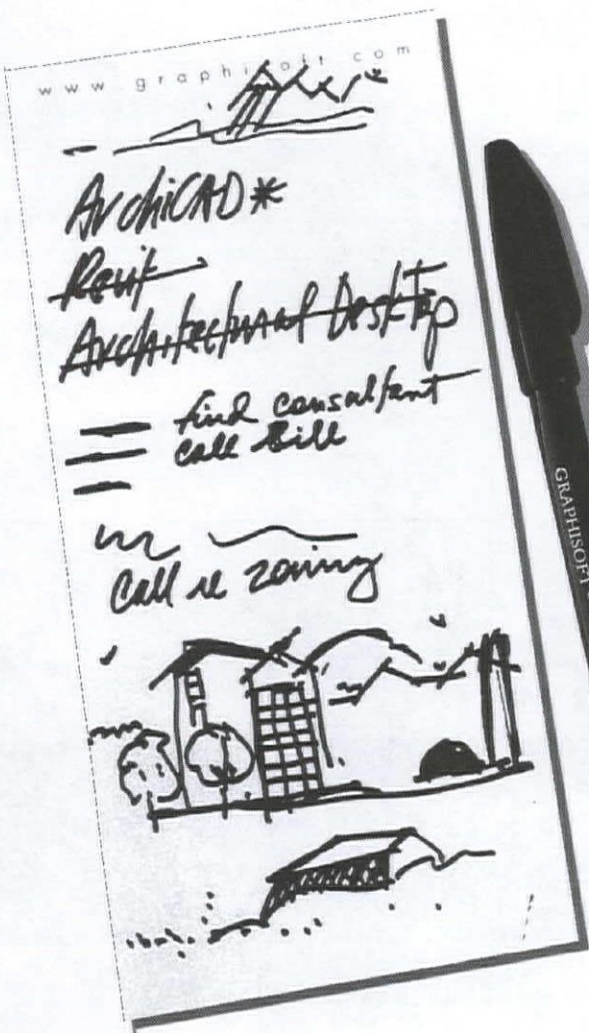 www.graphisoft.com
ArchiCAD*
Revit
Architectural Desktop
find consultant
call Bill
Call re zoning
GRAPHISOFT